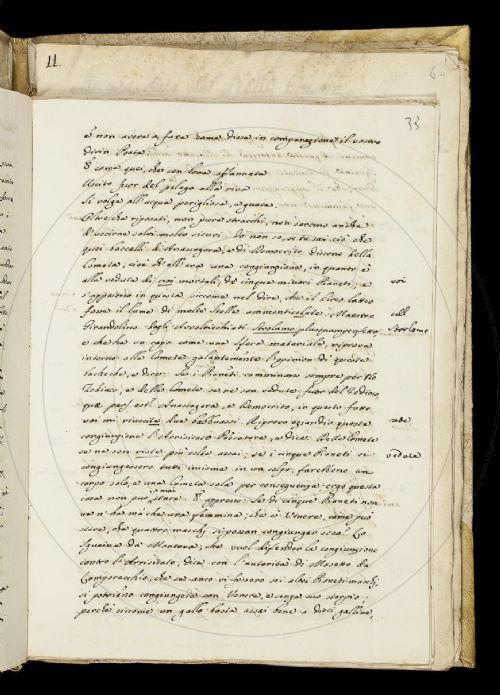 11.
33
è non avere a fare come disse in comparazione il vostro
divin Poeta.
E come quei, che con lena affannata
Uscito fuor del pelago alla riva
Si volge all'acqua perigliosa, e guata.
Oltre che riposati, non pure stracchi, non saremo anche
d'uscirne salvi molto sicuri. Io non so, se ti sai ciò che
quei baccelli di Anassagora, e di Democrito dissono della
Cometa, cioè ch'ell'era una congiunzione, in quanto è
alla veduta di noi mortali, de' cinque minori Pianeti; e
s'apposono in questa siccome nel dire, che il circo latteo
fosse il lume di molte stelle ammonticellate. Maestro
Girandolino dagli Arcolichichiati Strolamo plusquamperfetto
e che ha un capo come una sfera materiale, riprova
intorno alle Comete galantemente l'opinion di queste
tacche, e dice. Se i Pianeti camminano sempre per lo
Zodiaco, e delle Comete se ne son vedute fuor del Zodiaco,
quae pars est? Anassagora, e Democrito, in questo fatto
voi mi riuscite due babbuassi. Riprova eziandio questa
congiunzione l'Arcisisalo Pescatore, e dice. Delle Comete
se ne son viste più volte assai; se i cinque Pianeti si
congiungessero tutti insieme in un colpo, farebbono un
corpo solo, e una Cometa sola per conseguenza: ergo questa
cosa non può stare. E appresso: Se di cinque Pianeti non
ve n'ha mai che una femmina, che è Venere, come può
stare, che quattro maschi si possan congiunger seco? Lo
Squeina da Mantova, che vuol difender la congiunzione
contro l'Arcisisalo, dice con l'autorità di Masetto da
Lamporecchio, che se anco vi fossero sei altri Pianeti maschi
si potriano congiungere con Venere, e senza suo storpio;
perchè siccome un gallo basta assai bene a dieci galline,
voi
coll
Strolamo
vedute